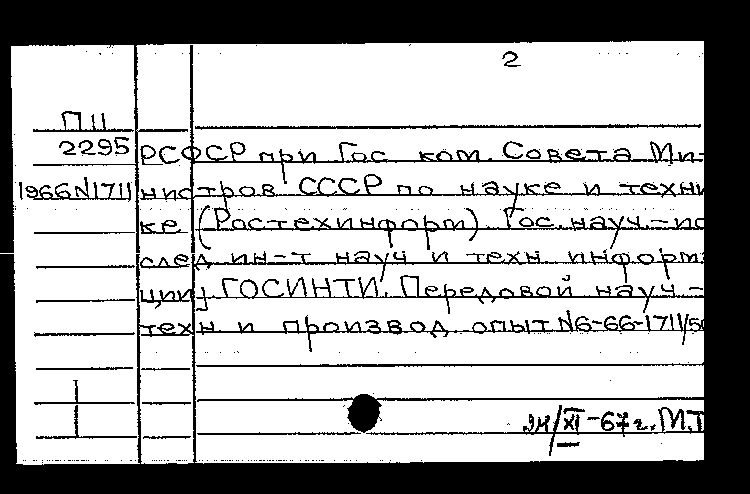 2
П11
2295 РСФСР при Гос. ком. Совета Ми-
1966N1711 нистров СССР по науке и техни
ке (Ростехинформ). Гос. науч.-ис
след. ин-т науч. и техн. информа
ции ГОСИНТИ. Передовой науч.-
техн. и производ. опыт N6-66-1711/50
24/XI-67г. М.Т